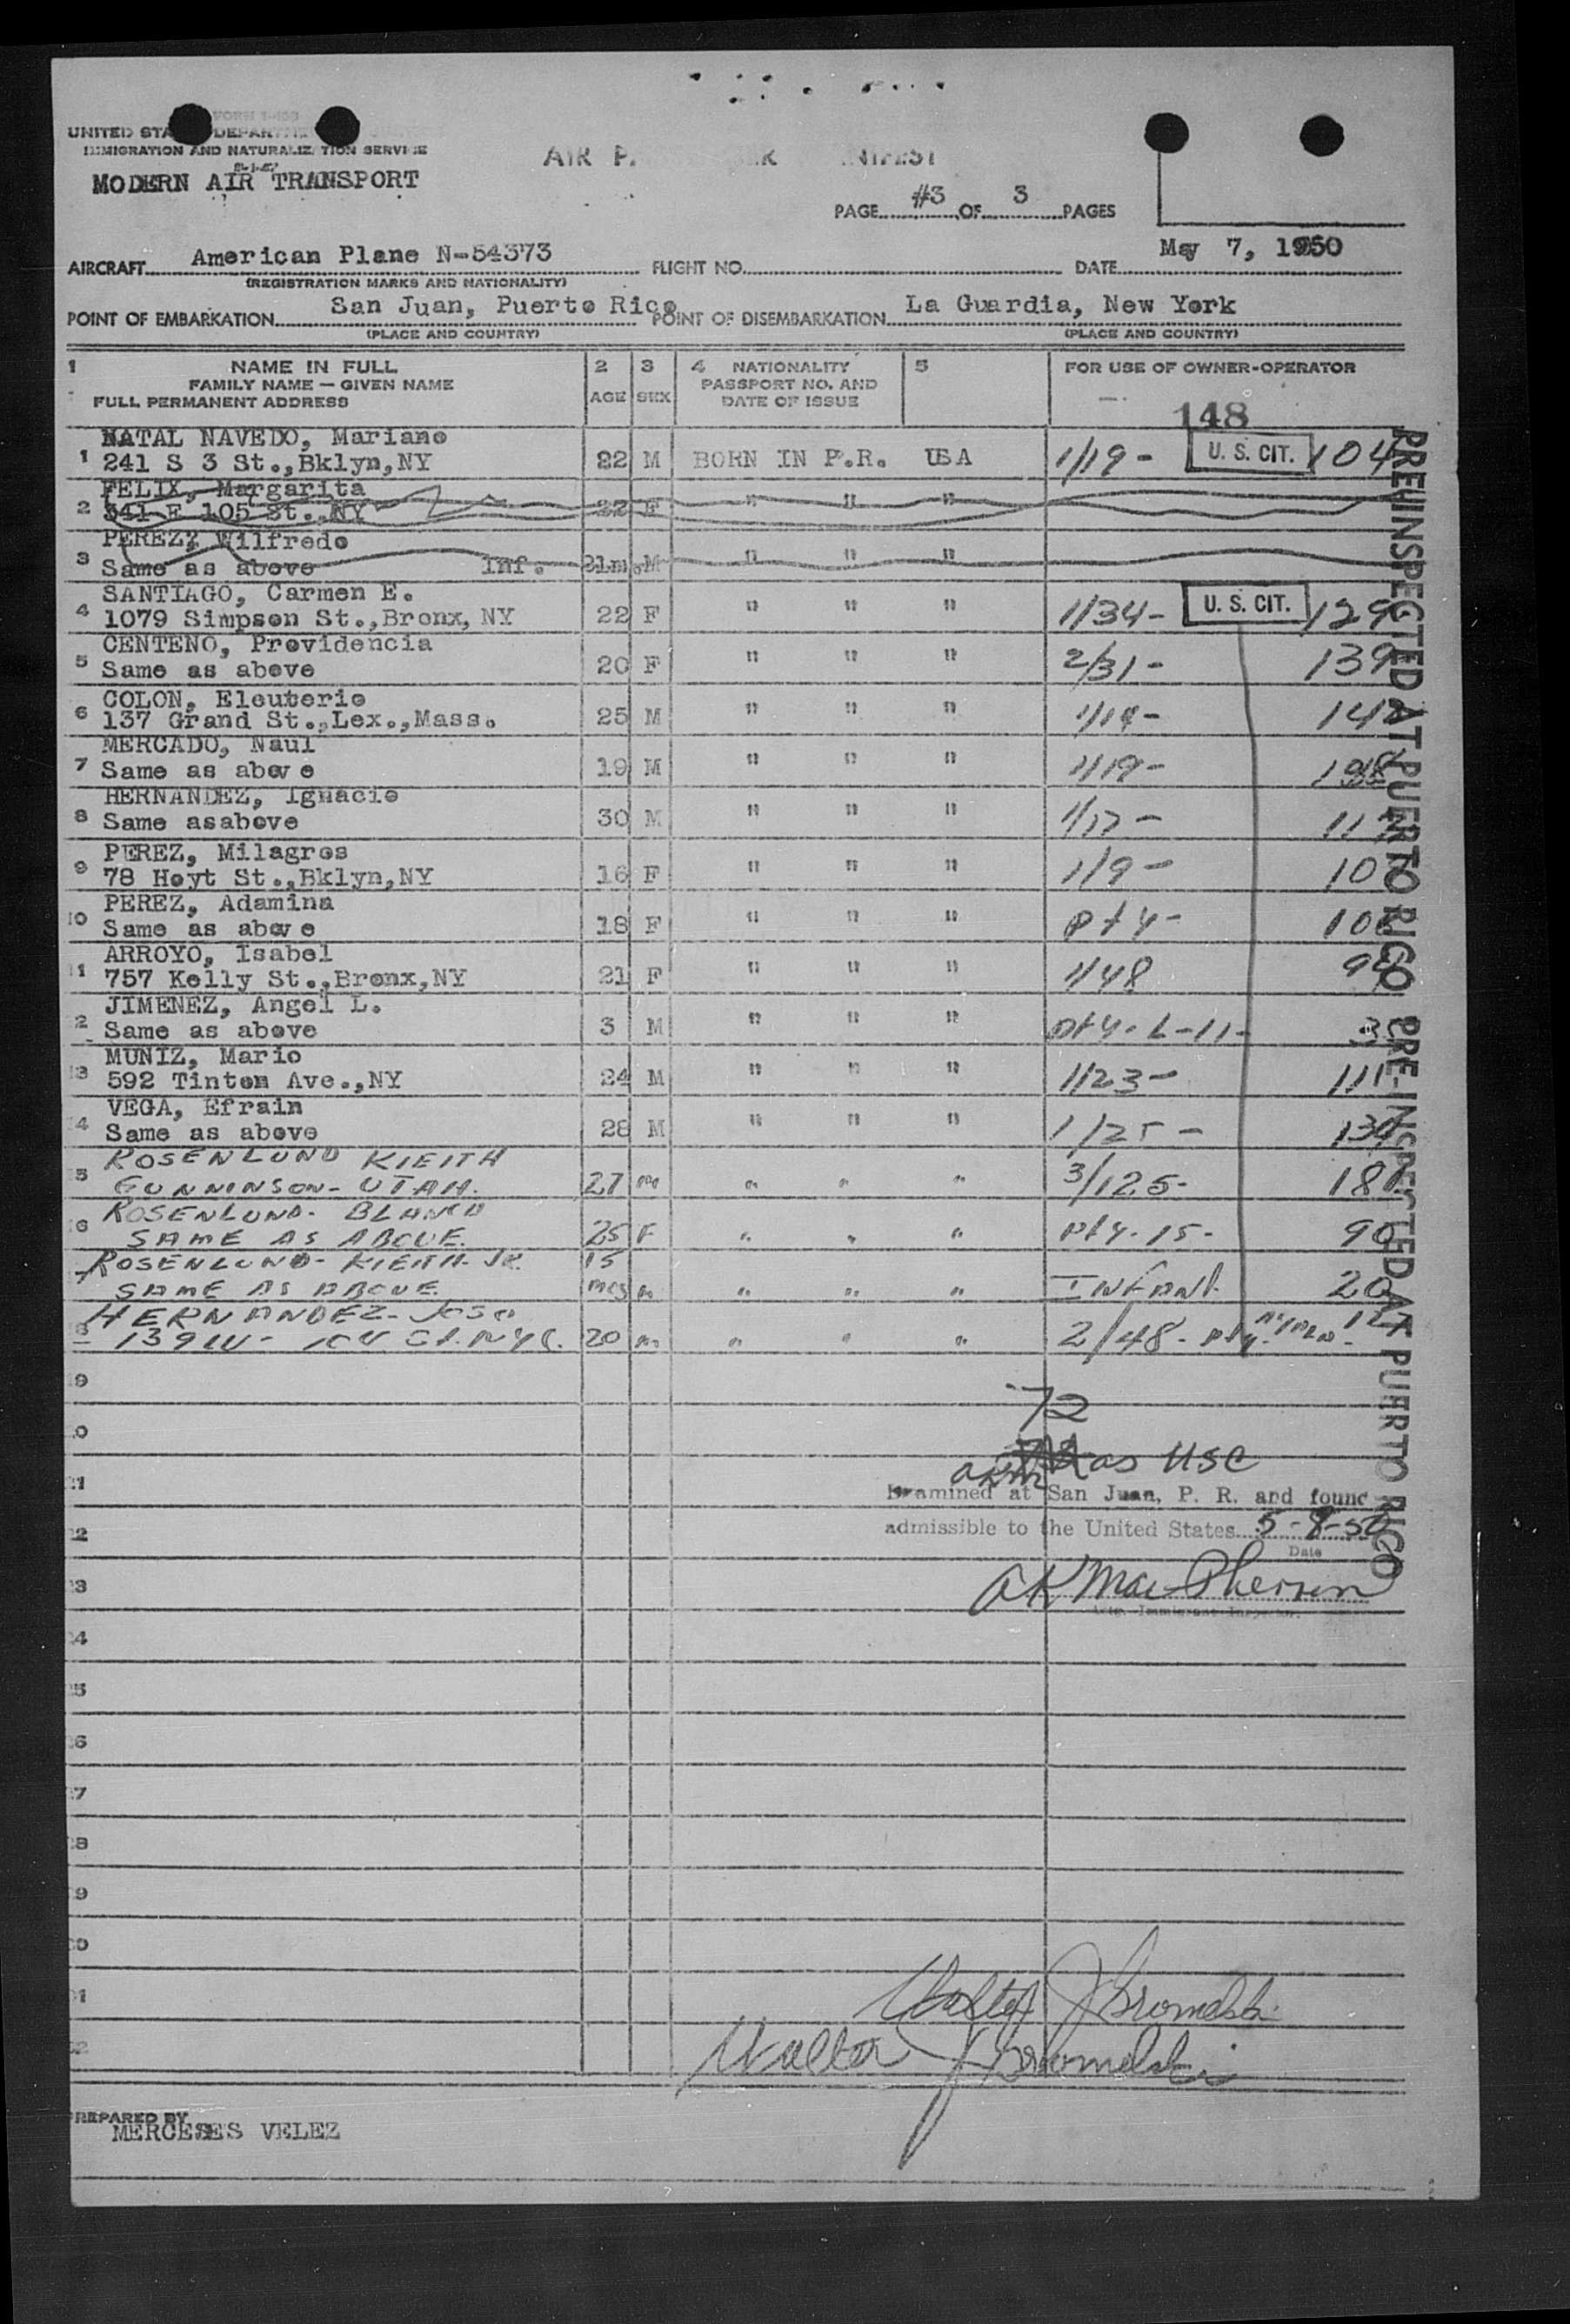 FORM I-466
UNITED STA DEPARTME
IMMIGRATION AND NATURALIZATION SERVICE
MODERN AIR TRANSPORT
AIR P R NIFEST
PAGE #3 OF 3 PAGES
AIRCRAFT American Plane N-54373 FLIGHT NO. DATE May 7, 1950
(REGISTRATION MARKS AND NATIONALITY)
POINT OF EMBARKATION San Juan, Puerto Rico POINT OF DISEMBARKATION La Guardia, New York
(PLACE AND COUNTRY) (PLACE AND COUNTRY)
1 NAME IN FULL 2 3 4 NATIONALITY 5 FOR USE OF OWNER-OPERATOR
FAMILY NAME — GIVEN NAME AGE SEX PASSPORT NO. AND
FULL PERMANENT ADDRESS DATE OF ISSUE
148
NATAL NAVEDO, Mariano
1 241 S 3 St.,Bklyn,NY 22 M BORN IN P.R. USA 1/19- U. S. CIT. 104
FELIX, Margarita
2 341 E 105 St.,NY 22 F " " "
PEREZ, Wilfredo
3 Same as above Inf. 21m. M " " "
SANTIAGO, Carmen E.
4 1079 Simpson St.,Bronx,NY 22 F " " " 1/34- U. S. CIT. 129
CENTENO, Providencia
5 Same as above 20 F " " " 2/31- 139
COLON, Eleuterio
6 137 Grand St.,Lex.,Mass. 25 M " " " 1/19-
MERCADO, Naul
7 Same as abov e 19 M " " " 1/19-
HERNANDEZ, Ignacio
8 Same asabove 30 M " " " 1/17-
PEREZ, Milagros
9 78 Hoyt St.,Bklyn,NY 16 F " " " 1/9-
PEREZ, Adamina
10 Same as abov e 18 F " " " pty-
ARROYO, Isabel
11 757 Kelly St.,Bronx,NY 21 F " " " 1/48
JIMENEZ, Angel L.
2 Same as above 3 M " " " pty-L-11-
MUNIZ, Mario
13 592 Tinton Ave.,NY 24 M " " " 1/23- 111
VEGA, Efrain
4 Same as above 28 M " " " 1/25-
ROSENLUND KIEITH
5 GUNNINSON- UTAH. 27 m " " " 3/125-
ROSENLUND- BLANCA
6 SAME AS ABOVE. 25 F " " " pty-15- 90
ROSENLUND- KIEITH- JR. 15
SAME AS ABOVE mcs m " " " INFANT. 20
HERNANDEZ- Jose
139 W- 104 St. NYC. 20 m " " " 2/48- pty
9
0
72
21 as USC
Examined at San Juan, P. R. and found
22 admissible to the United States 5-8-50
Date
23 AK MacPherson
Immigrant Inspector
24
25
26
27
28
29
30
31
32
Walter J Gromelski
Walter J Gromelski
PREPARED BY
MERCEDES VELEZ
PRE-INSPECTED AT PUERTO RICO PRE-INSPECTED AT PUERTO RICO